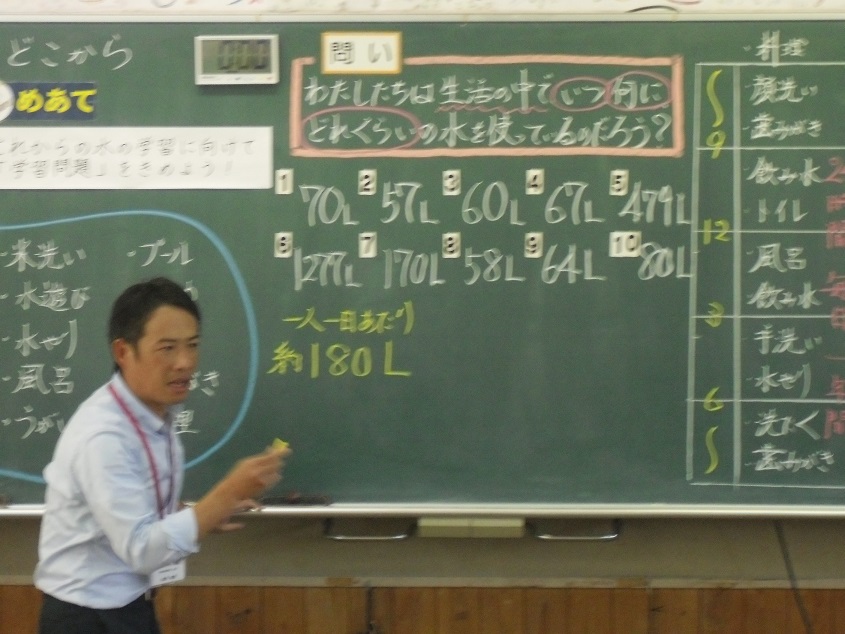 どこから
めあて
これからの水の学習に向けて
「学習問題」をきめよう!
問い
わたしたちは生活の中でいつ何に
どれぐらいの水を使っているのだろう?
1 70L 2 57L 3 60L 4 67L 5 479L
6 1277L 7 170L 8 58L 9 64L 10 80L
一人一日あたり
約180L
・米洗い ・プール
・水遊び
・水やり
・風呂
・うがい
・料理
顔洗い
歯みがき
9
飲み水
トイレ
12
風呂
飲み水
3
手洗い
水やり
6
洗たく
歯みがき
24時間
毎日
一年間